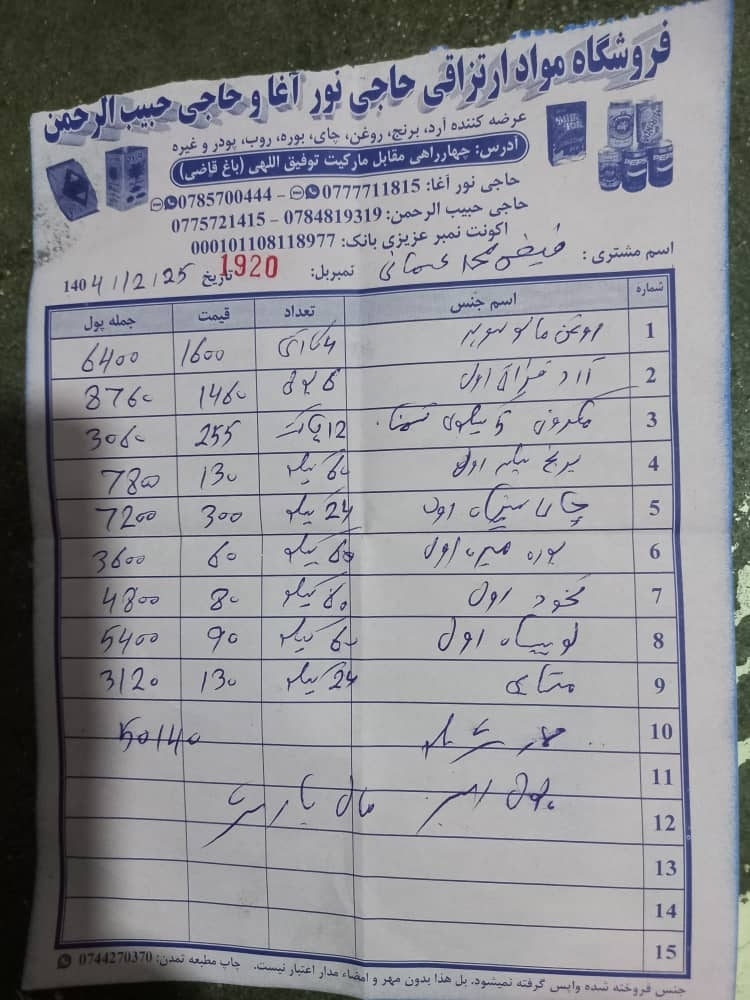 فروشگاه مواد ارتزاقی حاجی نور آغا و حاجی حبیب الرحمن
عرضه کننده آرد، برنج، روغن، چای، بوره، روب، پودر و غیره
آدرس: چهارراهی مقابل مارکیت توفیق اللهی (باغ قاضی)
حاجی نور آغا: 0777711815 - 0785700444
حاجی حبیب الرحمن: 0784819319 - 0775721415
اکونت نمبر عزیزی بانک: 000101108118977
اسم مشتری: فیض محمد عثمانی نمبربل: 1920 تاریخ 1404/12/25
شماره اسم جنس تعداد قیمت جمله پول
1 روغن 1600 6400
2 آرد اول 6 1460 8760
3 مکرونی 5 کیلوی تمنا 12 255 3060
4 برنج اول 60 کیلو 130 7800
5 چای سبز اول 24 کیلو 300 7200
6 بوره اول 60 کیلو 60 3600
7 نخود اول 60 کیلو 80 4800
8 لوبیا اول 60 کیلو 90 5400
9 24 کیلو 130 3120
10 50140
11
12 مال
13
14
15
جنس فروخته شده واپس گرفته نمیشود. بل هذا بدون مهر و امضاء مدار اعتبار نیست. چاپ مطبعه تمدن: 0744270370